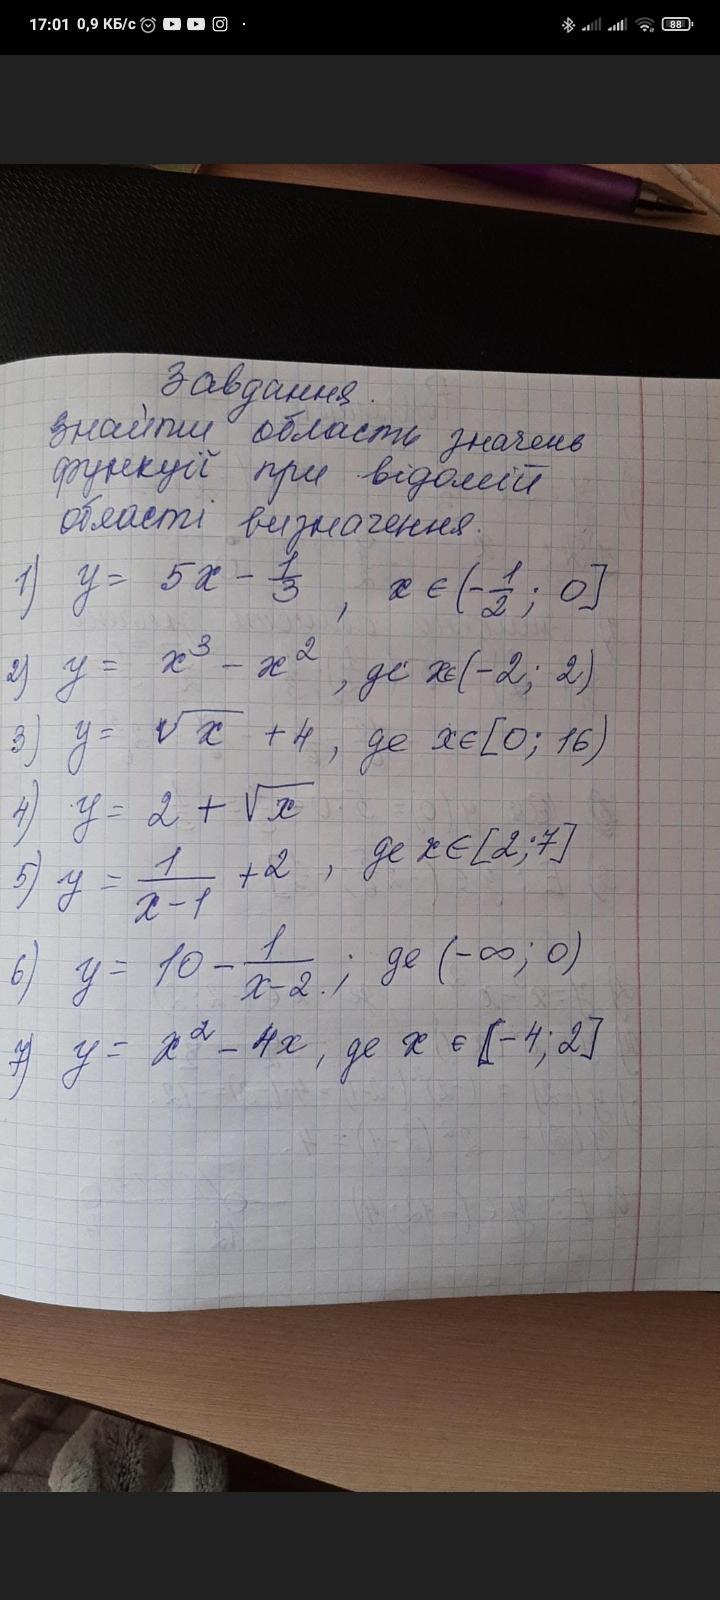 17:01 0,9 КБ/с
88
Завдання.
Знайти область значень
функції при відомій
області визначення.
1) y = 5x - 1/3, x ∈ (-1/2; 0]
2) y = x³ - x², де x∈(-2; 2)
3) y = √x + 4, де x∈[0; 16)
4) y = 2 + √x
5) y = 1/(x-1) + 2, де x∈[2;7]
6) y = 10 - 1/(x-2); де (-∞; 0)
7) y = x² - 4x, де x ∈ [-4; 2]